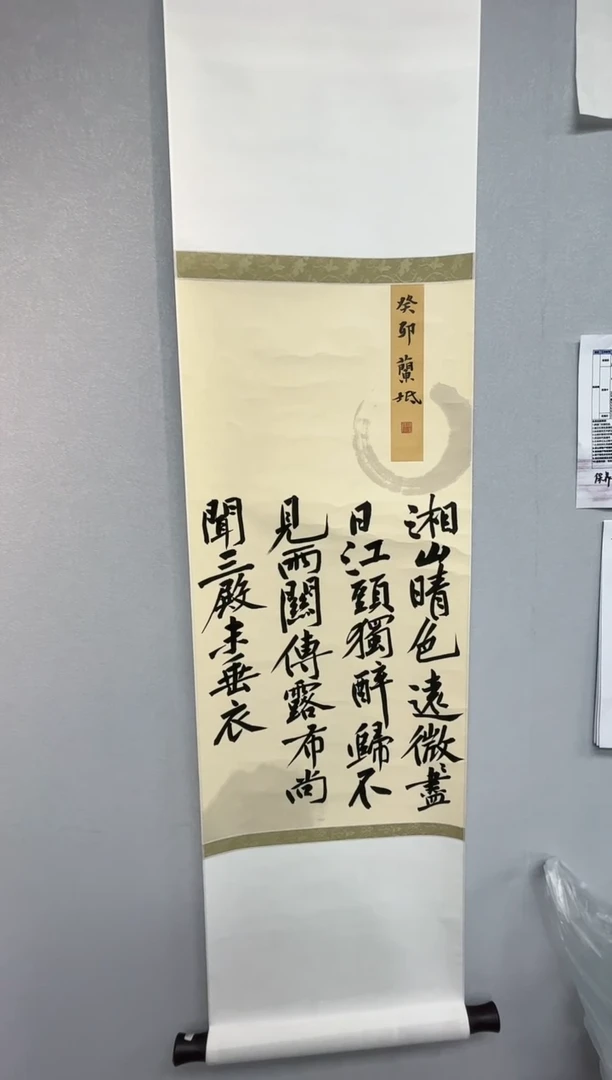 癸卯 蘭坻
湘山晴色遠微〻盡
日江頭獨醉歸不
見兩關傳露布尚
聞三殿未垂衣